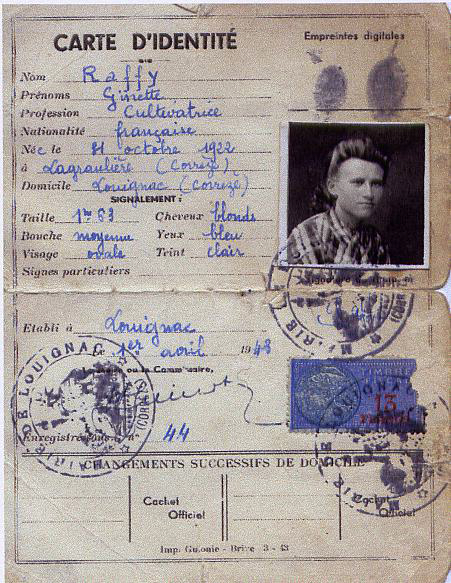 CARTE D'IDENTITÉ
Empreintes digitales
Nom Raffy
Prénoms Ginette
Profession Cultivatrice
Nationalité française
Née le 31 octobre 1922
à Lagraulière (Corrèze)
Domicile Louignac (Corrèze)
SIGNALEMENT :
Taille 1m 63 Cheveux blonds
Bouche moyenne Yeux bleu
Visage ovale Teint clair
Signes particuliers
MAIRIE
Etabli à Louignac
le 1er avril 1943
ou le Commissaire,
MAIRIE DE LOUIGNAC
(CORRÈZE)
13
Enregistré sous le n° 44
CHANGEMENTS SUCCESSIFS DE DOMICILE
Cachet
Officiel
Cachet
Officiel
Imp. Guionie - Brive 3 - 43